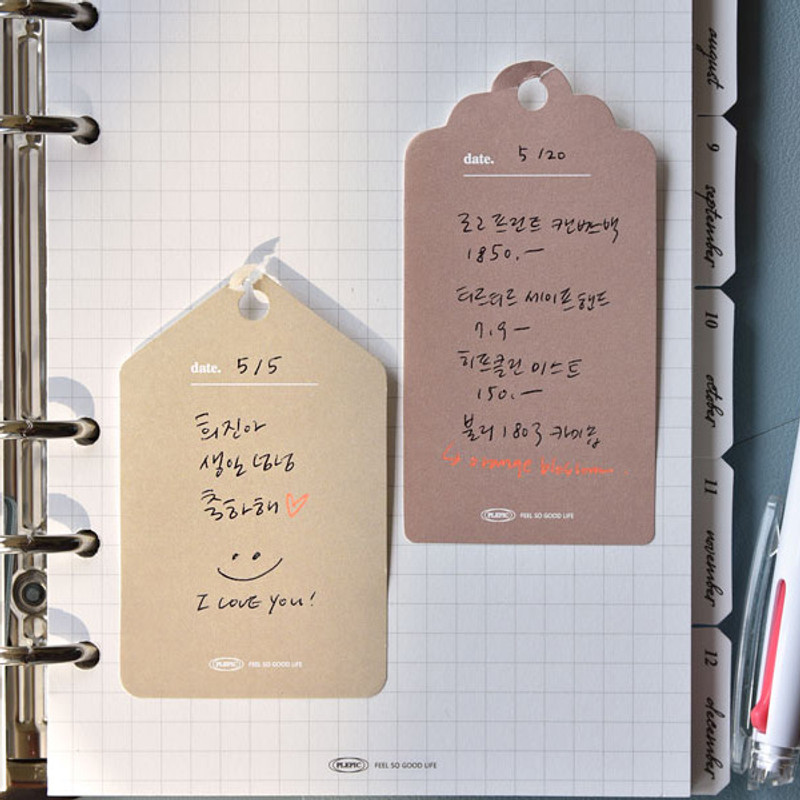 date. 5/5
희진아
생일 넘넘
축하해♡
I LOVE YOU!
PLEPIC FEEL SO GOOD LIFE
date. 5/20
로고 프린트 캔버스백
1850.—
티르티르 세이프핸드
7.9—
히프클린 미스트
150.—
불리 1803 카이퐁
↳ orange blossom.
PLEPIC FEEL SO GOOD LIFE
august
9 september
10 october
11 november
12 december
PLEPIC FEEL SO GOOD LIFE